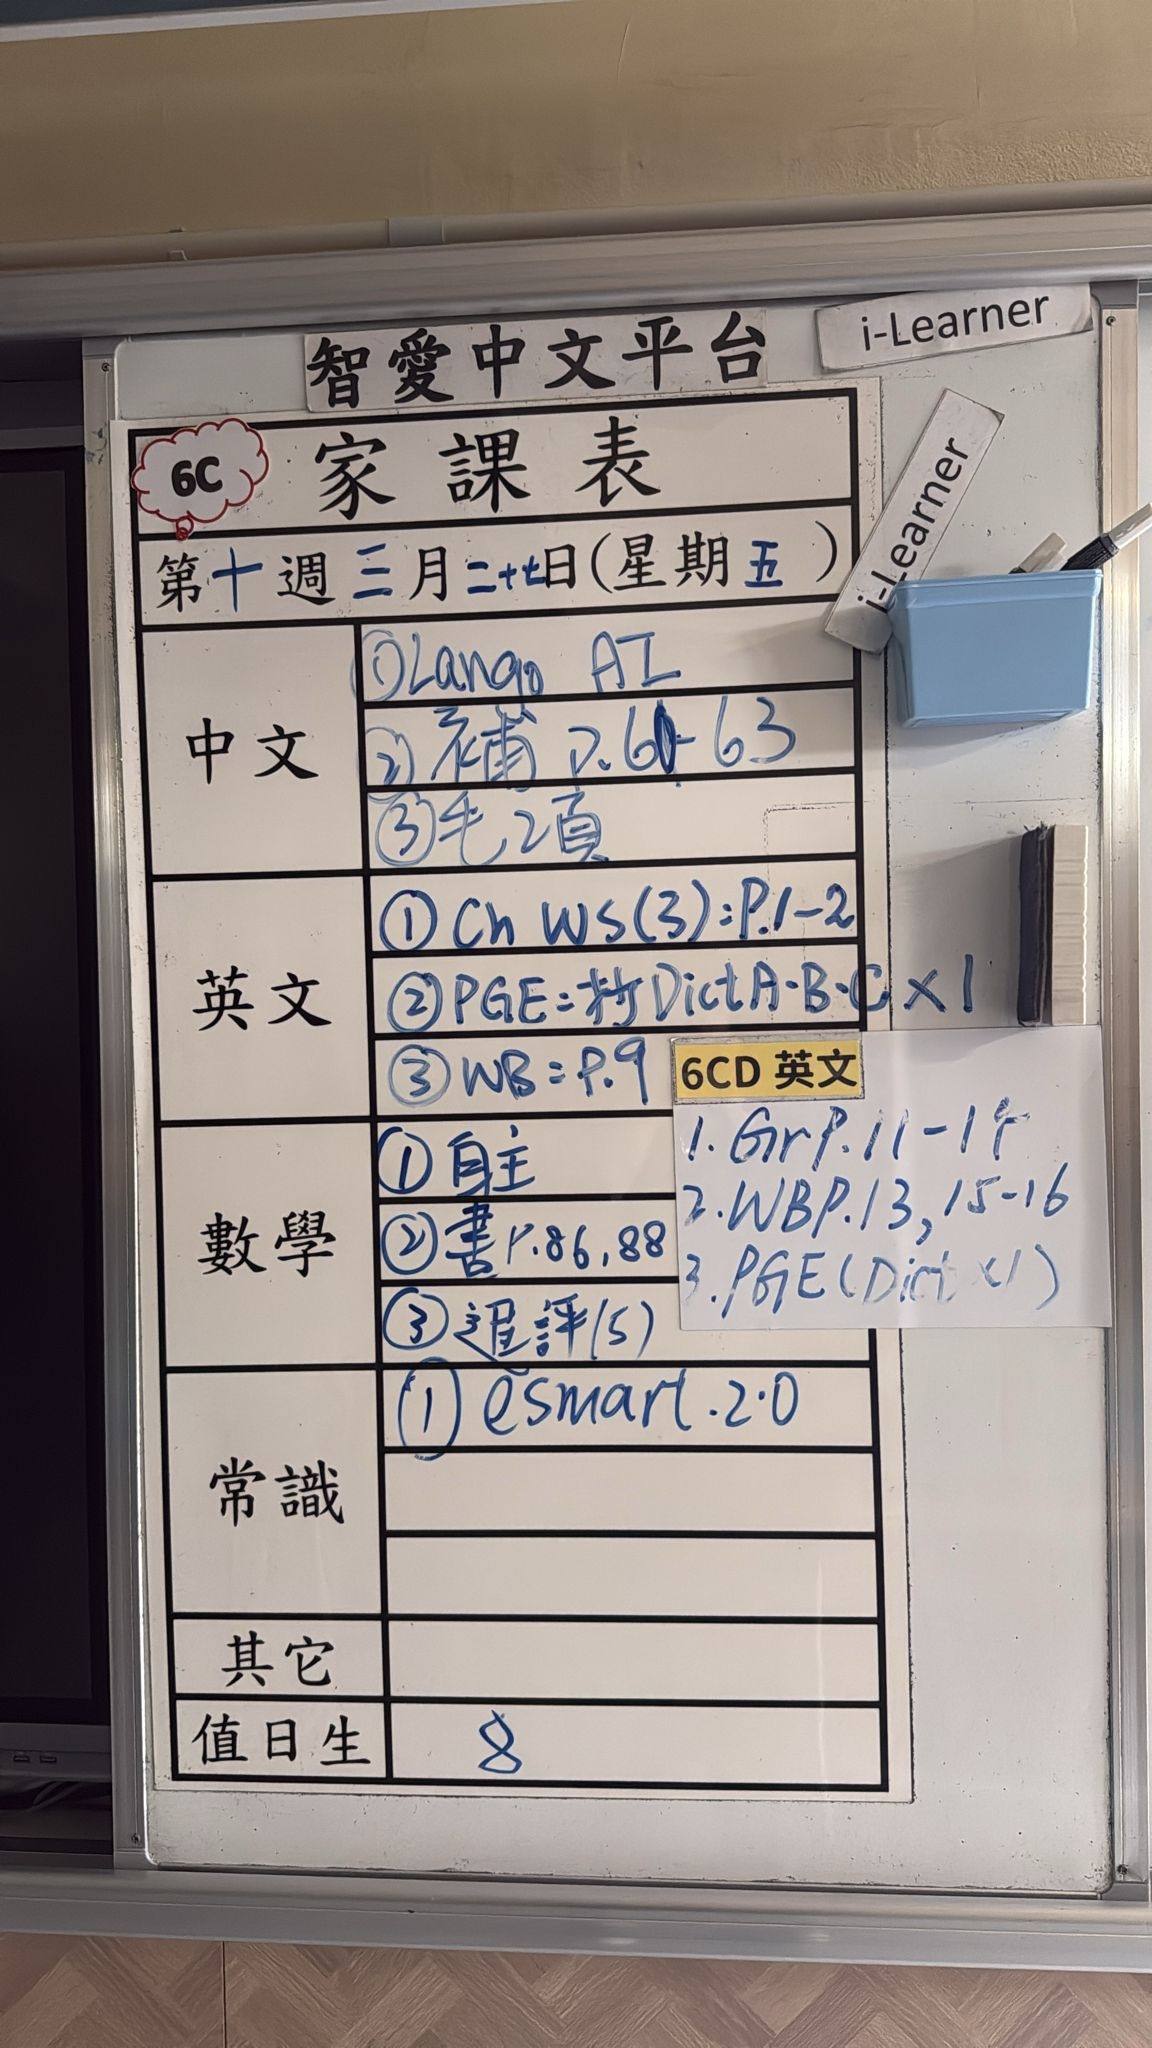 智愛中文平台
i-Learner
i-Learner
6C
家課表
第十週三月二十七日(星期五)
中文
①Lango AI
②補 P.61-63
③毛2頁
英文
①Ch WS(3):P.1-2
②PGE:抄DictA·B·C×1
③WB:P.9
6CD 英文
1.GrP.11-14
2.WBP.13,15-16
3.PGE(Dict×1)
數學
①自主
②書P.86,88
③進評(5)
常識
①eSmart.2.0
其它
值日生
8